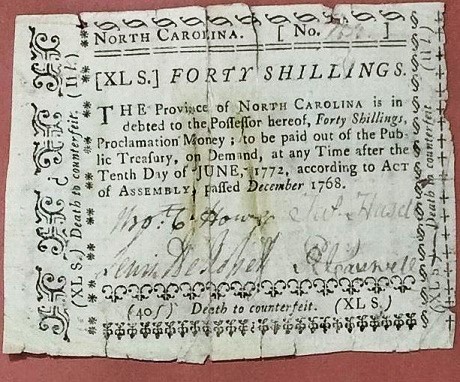 NORTH CAROLINA. [No. ]
[XL S.] FORTY SHILLINGS.
THE Province of NORTH CAROLINA is in
debted to the Possessor hereof, Forty Shillings,
Proclamation Money; to be paid out of the Pub-
lic Treasury, on Demand, at any Time after the
Tenth Day of JUNE, 1772, according to ACT
of ASSEMBLY, passed December 1768.
Lewis De Rosset
(40s) Death to counterfeit. (XL S.)
(XL S.) Death to counterfeit. (II l.)
(XL S.) Death to counterfeit (II l.)